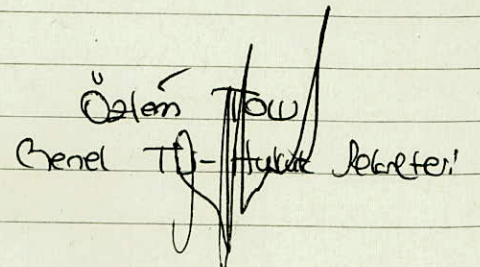 Özlem
Genel TİJ-Hukuk Sekreteri